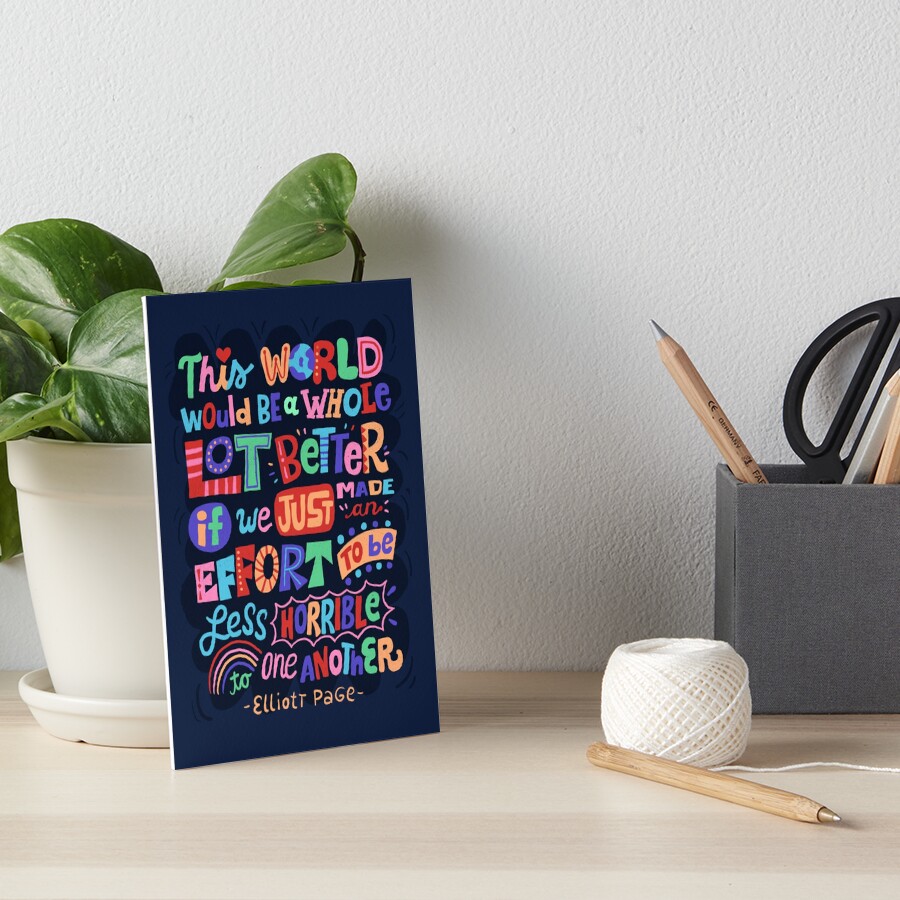 This WORLD
WOULD BE a WHOLE
LOT BETTER
if we JUST MADE an
EFFORT TO be
Less HORRIBLE
to one ANOTHER
-Elliott Page-
CE
GERMANY